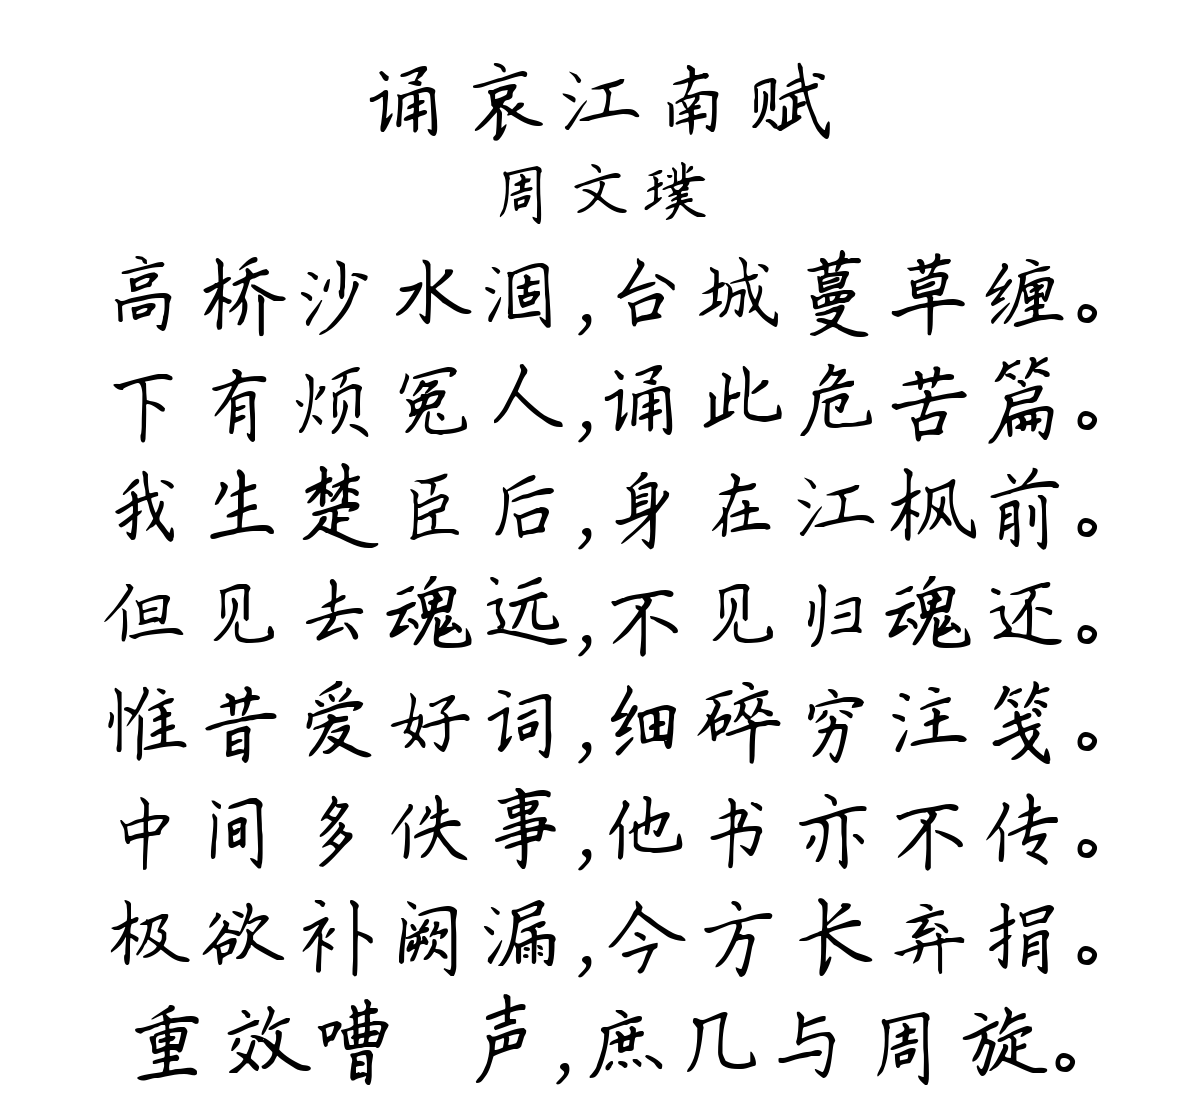 诵哀江南赋
周文璞
高桥沙水涸,台城蔓草缠。
下有烦冤人,诵此危苦篇。
我生楚臣后,身在江枫前。
但见去魂远,不见归魂还。
惟昔爱好词,细碎穷注笺。
中间多佚事,他书亦不传。
极欲补阙漏,今方长弃捐。
重效嘈 声,庶几与周旋。